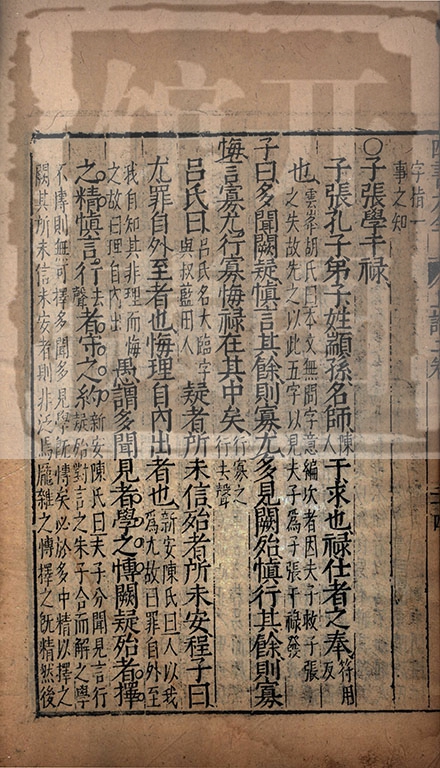 字指一
事之知
○子張學干祿
子張孔子弟子姓顓孫名師陳人干求也祿仕者之奉符用反
也雲峯胡氏曰本文無問字意編次者因夫子救子張
之失故先之以此五字以見夫子爲子張干祿發
子曰多聞闕疑慎言其餘則寡尤多見闕殆慎行其餘則寡
悔言寡尤行寡悔祿在其中矣行寡之行去聲
呂氏曰呂氏名大臨字與叔藍田人疑者所未信殆者所未安程子曰
尤罪自外至者也悔理自內出者也新安陳氏曰人以我爲尤故曰罪自外至
我自知其非理而悔之故曰理自內出愚謂多聞見者學之愽闕疑殆者擇
之精慎言行去聲者守之約新安陳氏曰夫子分聞見言行疑殆對言之朱子合而解之學
不愽則無可擇多聞多見學旣愽矣必於多中精以擇之
闕其所未信未安者則非泛焉龐雜之愽擇之旣精然後